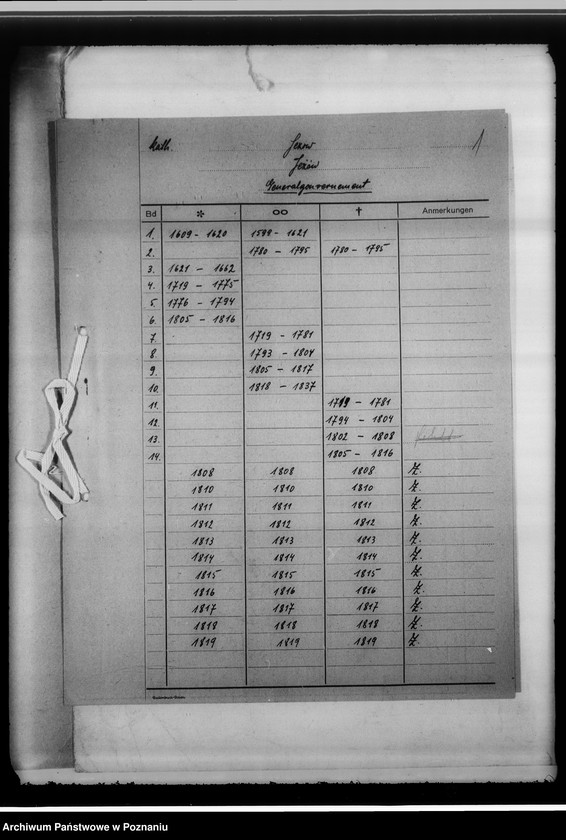 kath. Jezow 1
Jeżów
Generalgouvernement
Bd * ∞ † Anmerkungen
1. 1609 - 1620 1599 - 1621
2. 1780 - 1795 1780 - 1795
3. 1621 - 1662
4. 1719 - 1775
5. 1776 - 1794
6. 1805 - 1816
7. 1719 - 1781
8. 1793 - 1804
9. 1805 - 1817
10. 1818 - 1837
11. 1719 - 1781
12. 1794 - 1804
13. 1802 - 1808
14. 1805 - 1816
1808 1808 1808 Z.
1810 1810 1810 Z.
1811 1811 1811 Z.
1812 1812 1812 Z.
1813 1813 1813 Z.
1814 1814 1814 Z.
1815 1815 1815 Z.
1816 1816 1816 Z.
1817 1817 1817 Z.
1818 1818 1818 Z.
1819 1819 1819 Z.
Archiwum Państwowe w Poznaniu